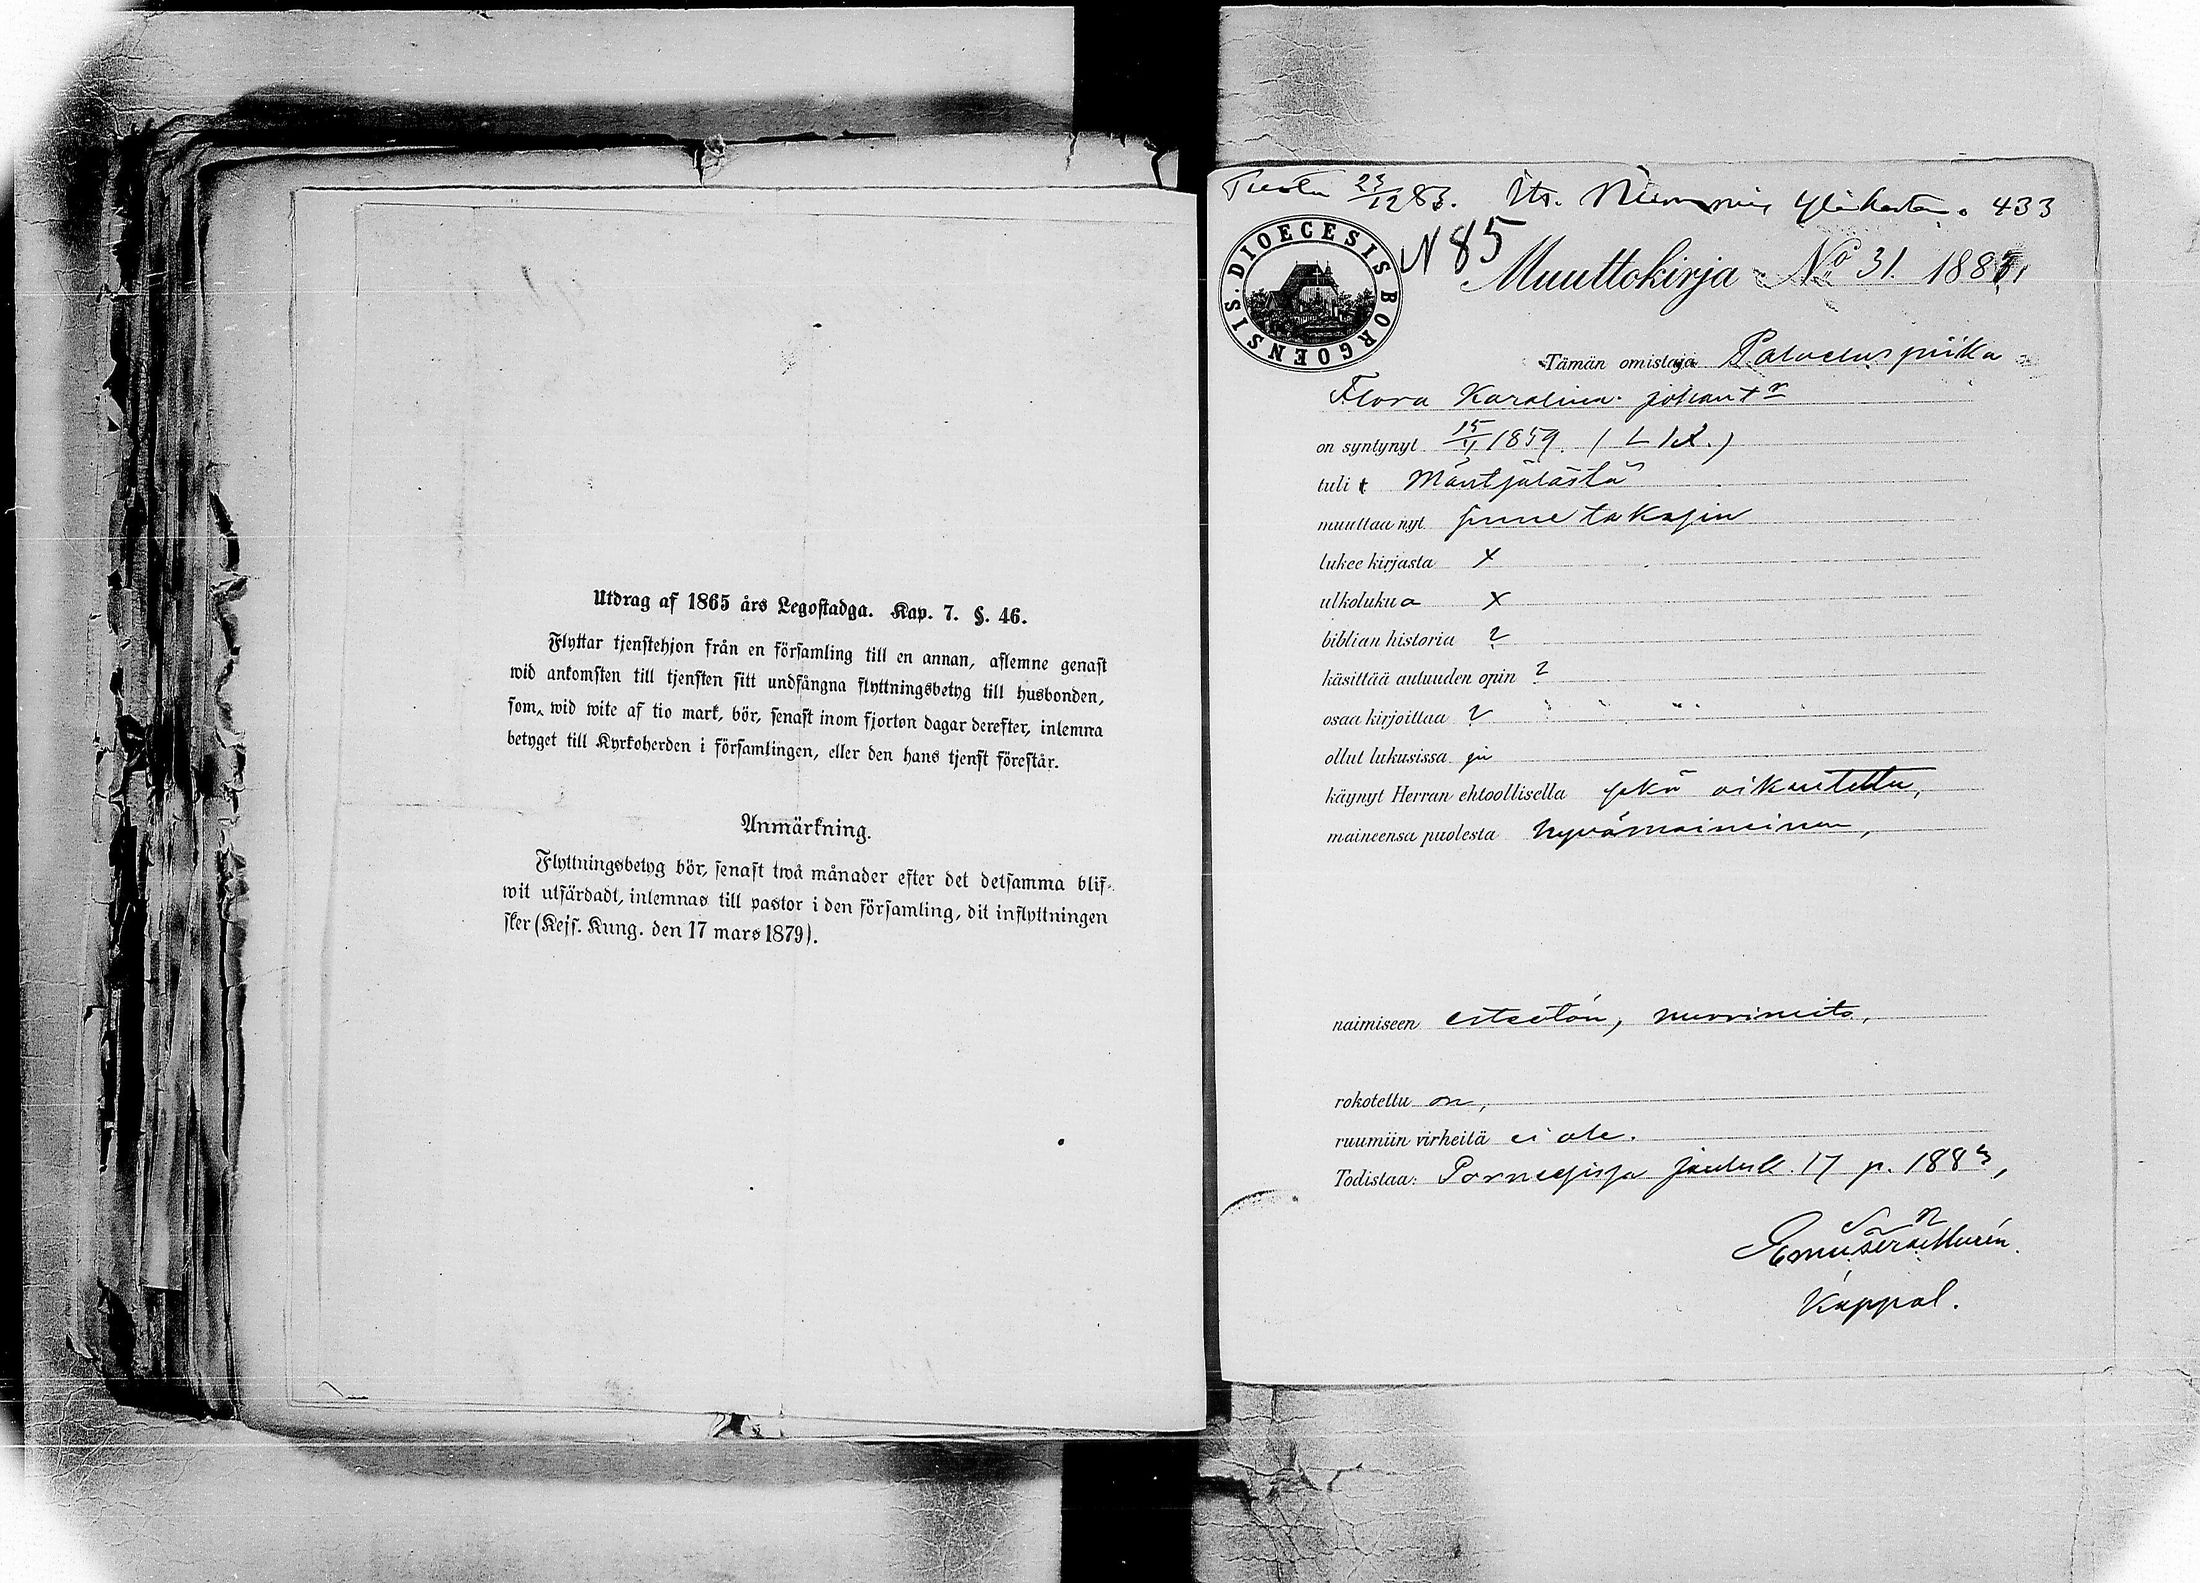 Utdrag af 1865 års Legostadga. Kap. 7. §. 46.
Flyttar tjenstehjon från en församling till en annan, aflemne genast
wid ankomsten till tjensten sitt undfångna flyttningsbetyg till husbonden,
som, wid wite af tio mark, bör, senast inom fjorton dagar derefter, inlemna
betyget till Kyrkoherden i församlingen, eller den hans tjenst förestår.
Anmärkning.
Flyttningsbetyg bör, senast twå månader efter det detsamma blif-
wit utfärdadt, inlemnas till pastor i den församling, dit inflyttningen
sker (Kejs. Kung. den 17 mars 1879).
23/12 83. 433
DIOECESIS BORGOENSIS.
N 85
Muuttokirja No 31. 1883,
Tämän omistaja Palveluspiika
Flora Karolina
on syntynyt 15/11 1859.
tuli Mäntsälästä
muuttaa nyt sinne takasin
lukee kirjasta x
ulkolukua x
biblian historia 2
käsittää autuuden opin 2
osaa kirjoittaa 2
ollut lukusissa
käynyt Herran ehtoollisella
maineensa puolesta hyvämaineinen,
naimiseen esteetön,
rokotettu on,
ruumiin virheitä ei ole.
Todistaa: Pornaisissa 17 p. 1883,
Kappal.